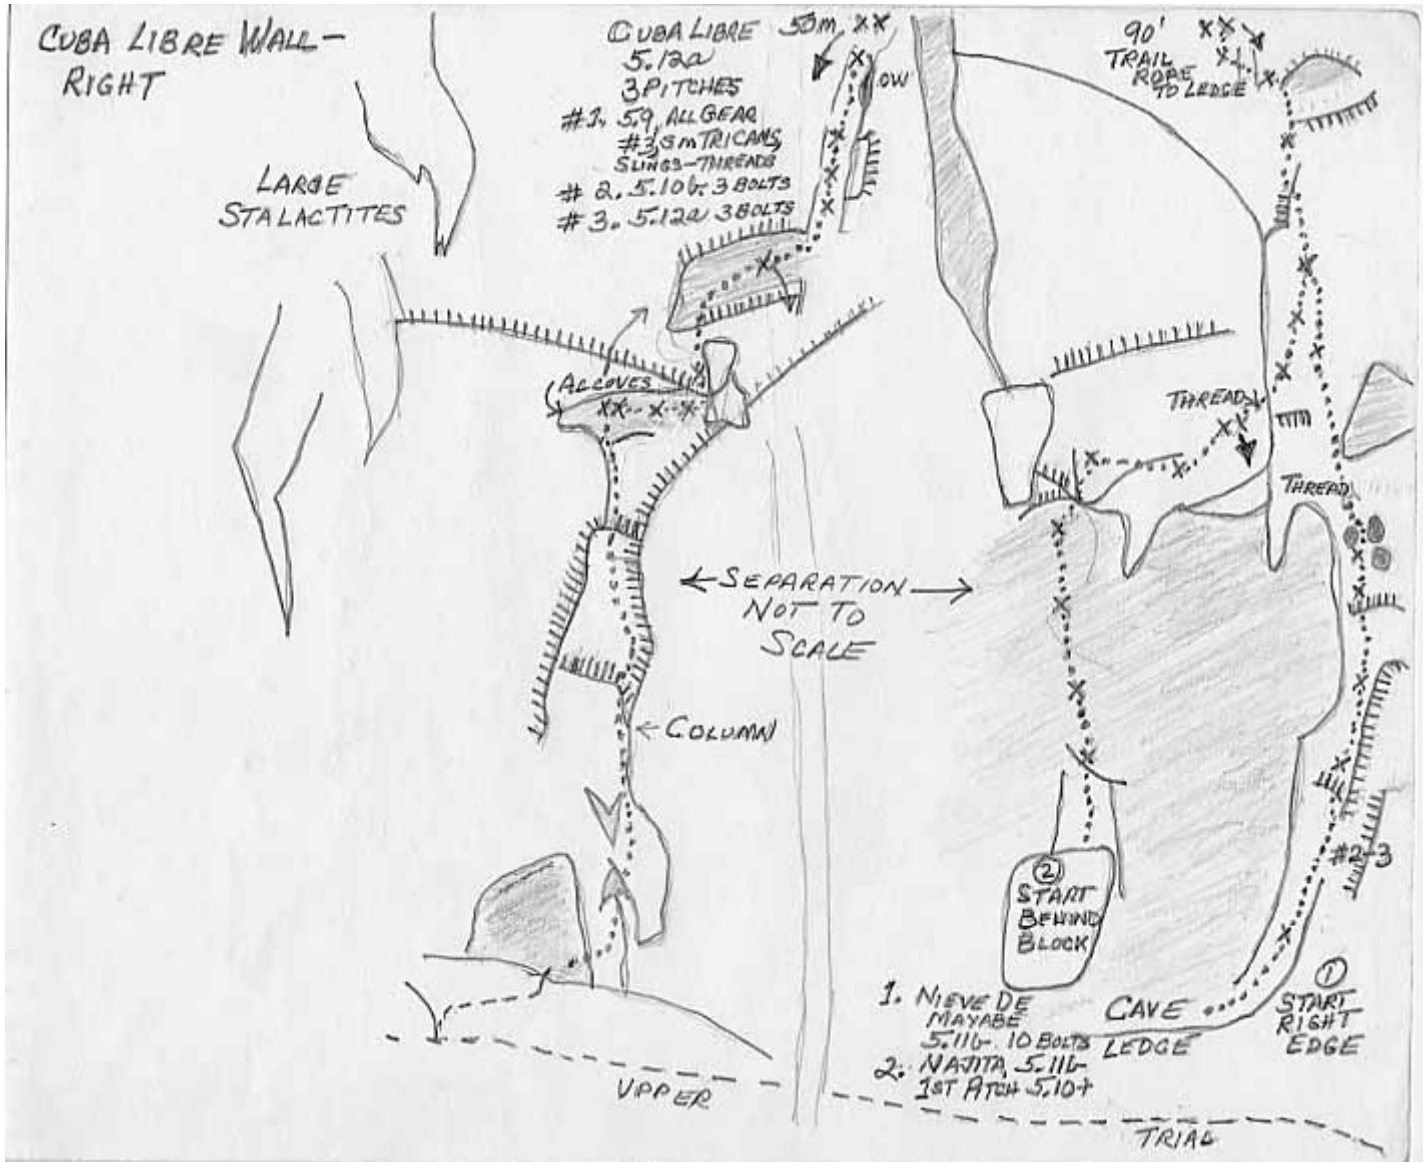 CUBA LIBRE WALL-
RIGHT
LARGE
STALACTITES
CUBA LIBRE 50m
5.12a
3 PITCHES
#1. 5.9, ALL GEAR
#3, sm TRICAMS,
SLINGS-THREADS
# 2. 5.10b 3 BOLTS
# 3. 5.12a 3 BOLTS
OW
90'
TRAIL
ROPE
TO LEDGE
ALCOVES
THREAD
THREAD
←SEPARATION→
NOT TO
SCALE
← COLUMN
#2-3
②
START
BEHIND
BLOCK
①
START
RIGHT
EDGE
CAVE
LEDGE
1. NIEVE DE
MAYABE
5.11b 10 BOLTS
2. NAJITA, 5.11b
1ST PITCH 5.10+
UPPER
TRIAL